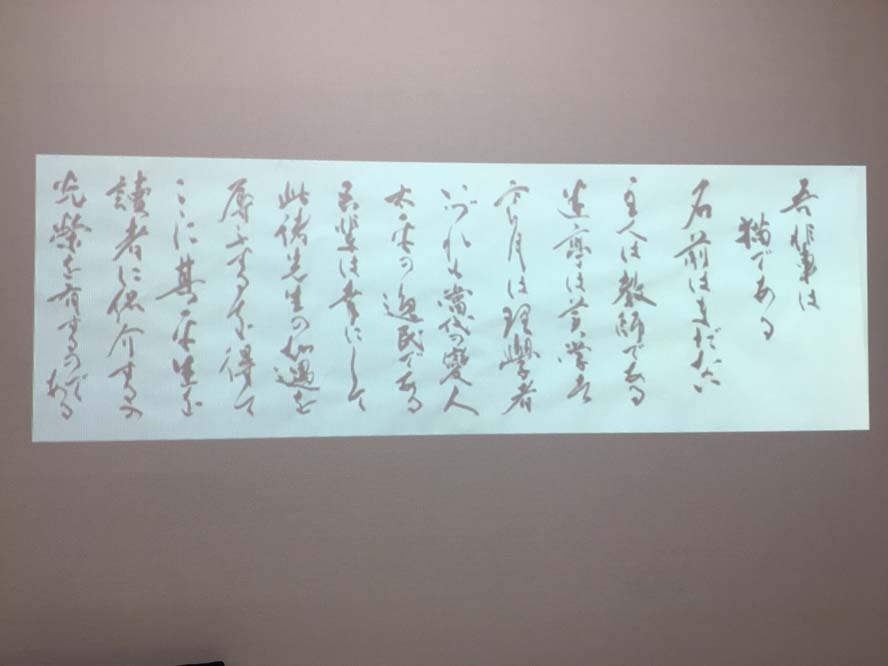 吾輩は
猫である
名前はまだない
主人は教師である
迷亭は美学者
寒月は理學者
いづれも當代の變人
太平の逸民である
吾輩は幸にして
此諸先生の知遇を
辱ふするを得て
こゝに其平生を
讀者に紹介するの
光榮を有するのである